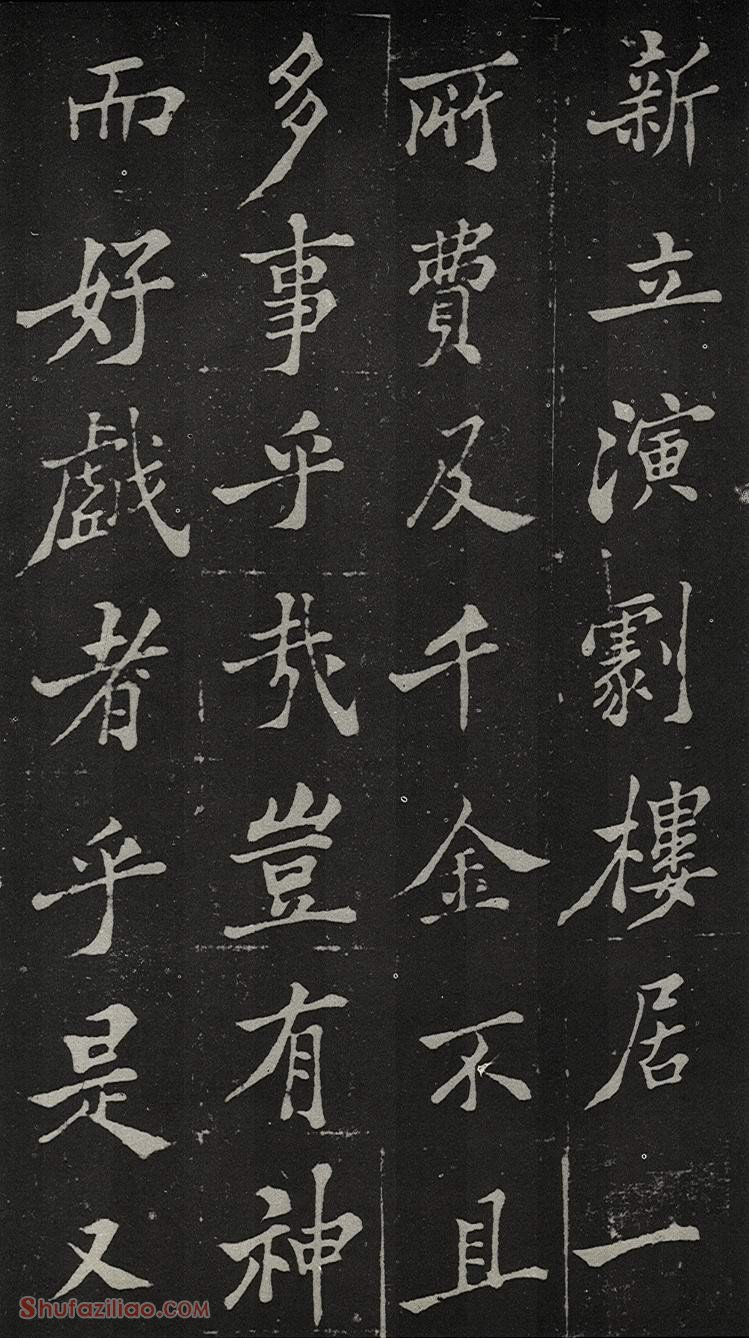 新立演劇樓居一
所費及千金不且
多事乎哉豈有神
而好戲者乎是又
Shufaziliao.com